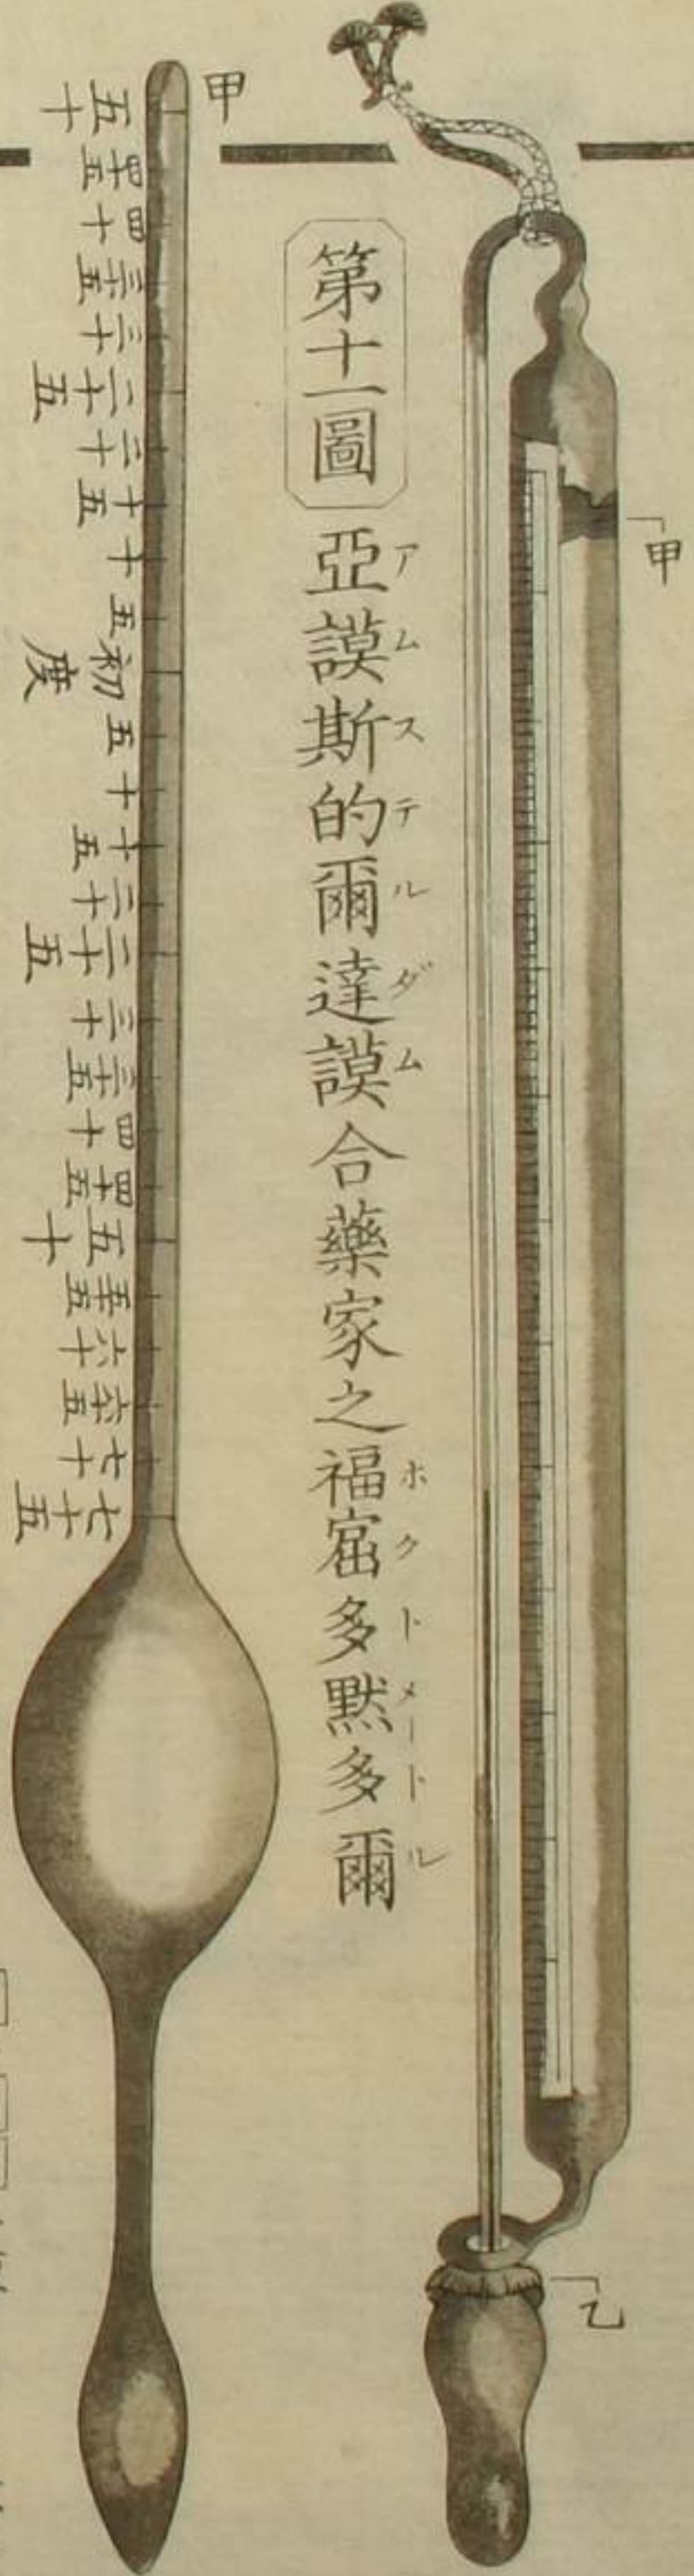 甲
乙
第十一圖
亞謨斯的爾達謨合藥家之福窟多黙多爾
アムステルダム
ホクトメートル
甲
五十
四十五
四十
三十五
三十
二十五
二十
十五
十
五
初度
五
十
十五
二十
二十五
三十
三十五
四十
四十五
五十
五十五
六十
六十五
七十
七十五